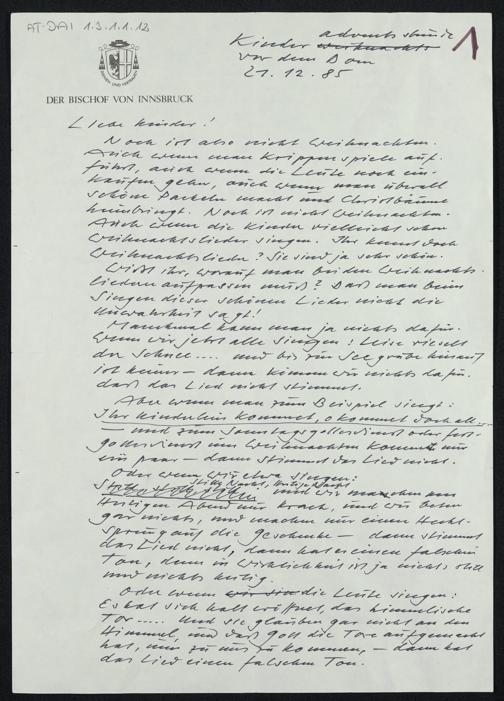 AT-DAI 1.3.1.1.12
Kinder weihnachts adventsstunde
vor dem Dom
21.12.85
1
DER BISCHOF VON INNSBRUCK
Liebe Kinder!
Noch ist also nicht Weihnachten.
Auch wenn man Krippenspiele auf-
führt, auch wenn die Leute noch ein-
kaufen gehn, auch wenn man überall
schöne Packeln macht und Christbäume
heimbringt. Noch ist nicht Weihnachten.
Auch wenn die Kinder vielleicht schon
Weihnachtslieder singen. Ihr kennt doch
Weihnachtslieder? Sie sind ja sehr schön.
Wißt ihr, worauf man bei den Weihnachts-
liedern aufpassen muß? Daß man beim
Singen dieser schönen Lieder nicht die
Unwahrheit sagt!
Manchmal kann man ja nichts dafür.
Wenn wir jetzt alle singen: Leise rieselt
der Schnee.... und bis zur Seegrube hinauf
ist keiner – dann können wir nichts dafür,
daß das Lied nicht stimmt.
Aber wenn man zum Beispiel singt:
Ihr Kinderlein kommet, o kommet doch all...
– und zum Sonntagsgottesdienst oder fest-
gottesdienst um Weihnachten kommt nur
ein paar – dann stimmt das Lied nicht.
Oder wenn wir etwa singen:
Stille Nacht, Heilige Nacht
und wir machen am
Heiligen Abend nur Krach, und wir beten
gar nichts, und machen nur einen Hecht-
sprung auf die Geschenke – dann stimmt
das Lied nicht, dann hat es einen falschen
Ton, denn in Wirklichkeit ist ja nichts still
und nichts heilig.
Oder wenn wir sin die Leute singen:
Es hat sich halt eröffnet, das himmlische
Tor ..... Und sie glauben gar nicht an den
Himmel, und daß Gott die Tore aufgemacht
hat, um zu uns zu kommen, – dann hat
das Lied einen falschen Ton.